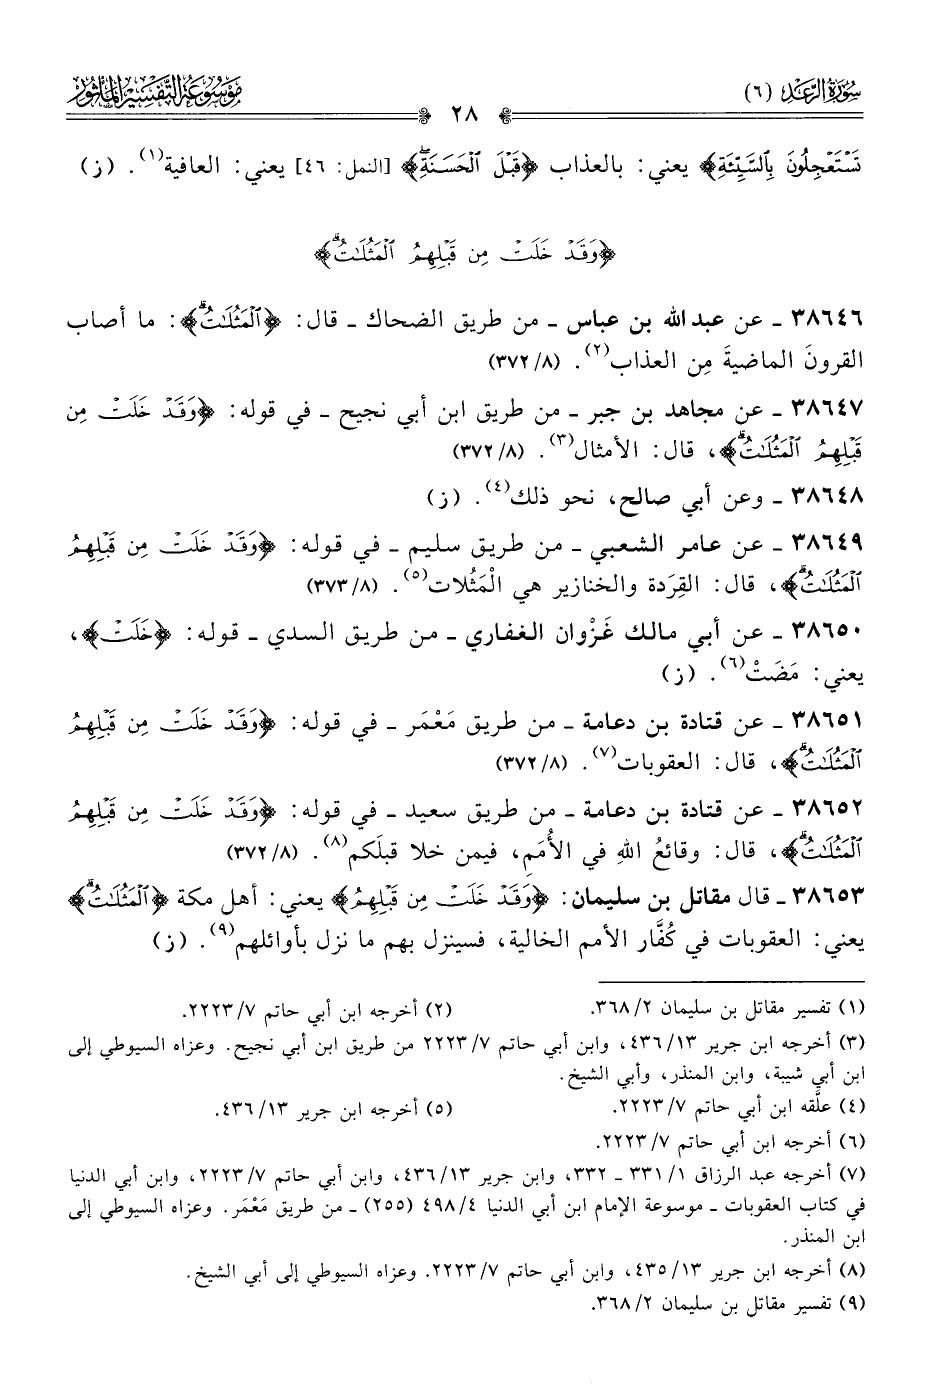 سُورَةُ الرَّعْدِ (٦)
٢٨
مَوْسُوعَةُ التَّفْسِيرِ المَأْثُور
تَسْتَعْجِلُونَ بِٱلسَّيِّئَةِ﴾ يعني: بالعذاب ﴿قَبْلَ ٱلْحَسَنَةِۖ﴾ [النمل: ٤٦] يعني: العافية(١). (ز)
﴿وَقَدْ خَلَتْ مِن قَبْلِهِمُ ٱلْمَثُلَٰتُۗ﴾
٣٨٦٤٦ ـ عن عبد الله بن عباس ـ من طريق الضحاك ـ قال: ﴿ٱلْمَثُلَٰتُۗ﴾: ما أصاب
القرونَ الماضيةَ مِن العذاب(٢). (٣٧٢/٨)
٣٨٦٤٧ ـ عن مجاهد بن جبر ـ من طريق ابن أبي نجيح ـ في قوله: ﴿وَقَدْ خَلَتْ مِن
قَبْلِهِمُ ٱلْمَثُلَٰتُۗ﴾، قال: الأمثال(٣). (٣٧٢/٨)
٣٨٦٤٨ ـ وعن أبي صالح، نحو ذلك(٤). (ز)
٣٨٦٤٩ ـ عن عامر الشعبي ـ من طريق سليم ـ في قوله: ﴿وَقَدْ خَلَتْ مِن قَبْلِهِمُ
ٱلْمَثُلَٰتُۗ﴾، قال: القِرَدة والخنازير هي الْمَثُلات(٥). (٣٧٣/٨)
٣٨٦٥٠ ـ عن أبي مالك غَزْوان الغفاري ـ من طريق السدي ـ قوله: ﴿خَلَتْ﴾،
يعني: مَضَتْ(٦). (ز)
٣٨٦٥١ ـ عن قتادة بن دعامة ـ من طريق مَعْمَر ـ في قوله: ﴿وَقَدْ خَلَتْ مِن قَبْلِهِمُ
ٱلْمَثُلَٰتُۗ﴾، قال: العقوبات(٧). (٣٧٢/٨)
٣٨٦٥٢ ـ عن قتادة بن دعامة ـ من طريق سعيد ـ في قوله: ﴿وَقَدْ خَلَتْ مِن قَبْلِهِمُ
ٱلْمَثُلَٰتُۗ﴾، قال: وقائعُ اللهِ في الأُمَمِ، فيمن خلا قبلَكم(٨). (٣٧٢/٨)
٣٨٦٥٣ ـ قال مقاتل بن سليمان: ﴿وَقَدْ خَلَتْ مِن قَبْلِهِمُ﴾ يعني: أهل مكة ﴿ٱلْمَثُلَٰتُۗ﴾
يعني: العقوبات في كُفَّار الأمم الخالية، فسينزل بهم ما نزل بأوائلهم(٩). (ز)
(١) تفسير مقاتل بن سليمان ٣٦٨/٢. (٢) أخرجه ابن أبي حاتم ٢٢٢٣/٧.
(٣) أخرجه ابن جرير ٤٣٦/١٣، وابن أبي حاتم ٢٢٢٣/٧ من طريق ابن أبي نجيح. وعزاه السيوطي إلى
ابن أبي شيبة، وابن المنذر، وأبي الشيخ.
(٤) علَّقه ابن أبي حاتم ٢٢٢٣/٧. (٥) أخرجه ابن جرير ٤٣٦/١٣.
(٦) أخرجه ابن أبي حاتم ٢٢٢٣/٧.
(٧) أخرجه عبد الرزاق ٣٣١/١ ـ ٣٣٢، وابن جرير ٤٣٦/١٣، وابن أبي حاتم ٢٢٢٣/٧، وابن أبي الدنيا
في كتاب العقوبات ـ موسوعة الإمام ابن أبي الدنيا ٤٩٨/٤ (٢٥٥) ـ من طريق مَعْمَر. وعزاه السيوطي إلى
ابن المنذر.
(٨) أخرجه ابن جرير ٤٣٥/١٣، وابن أبي حاتم ٢٢٢٣/٧. وعزاه السيوطي إلى أبي الشيخ.
(٩) تفسير مقاتل بن سليمان ٣٦٨/٢.